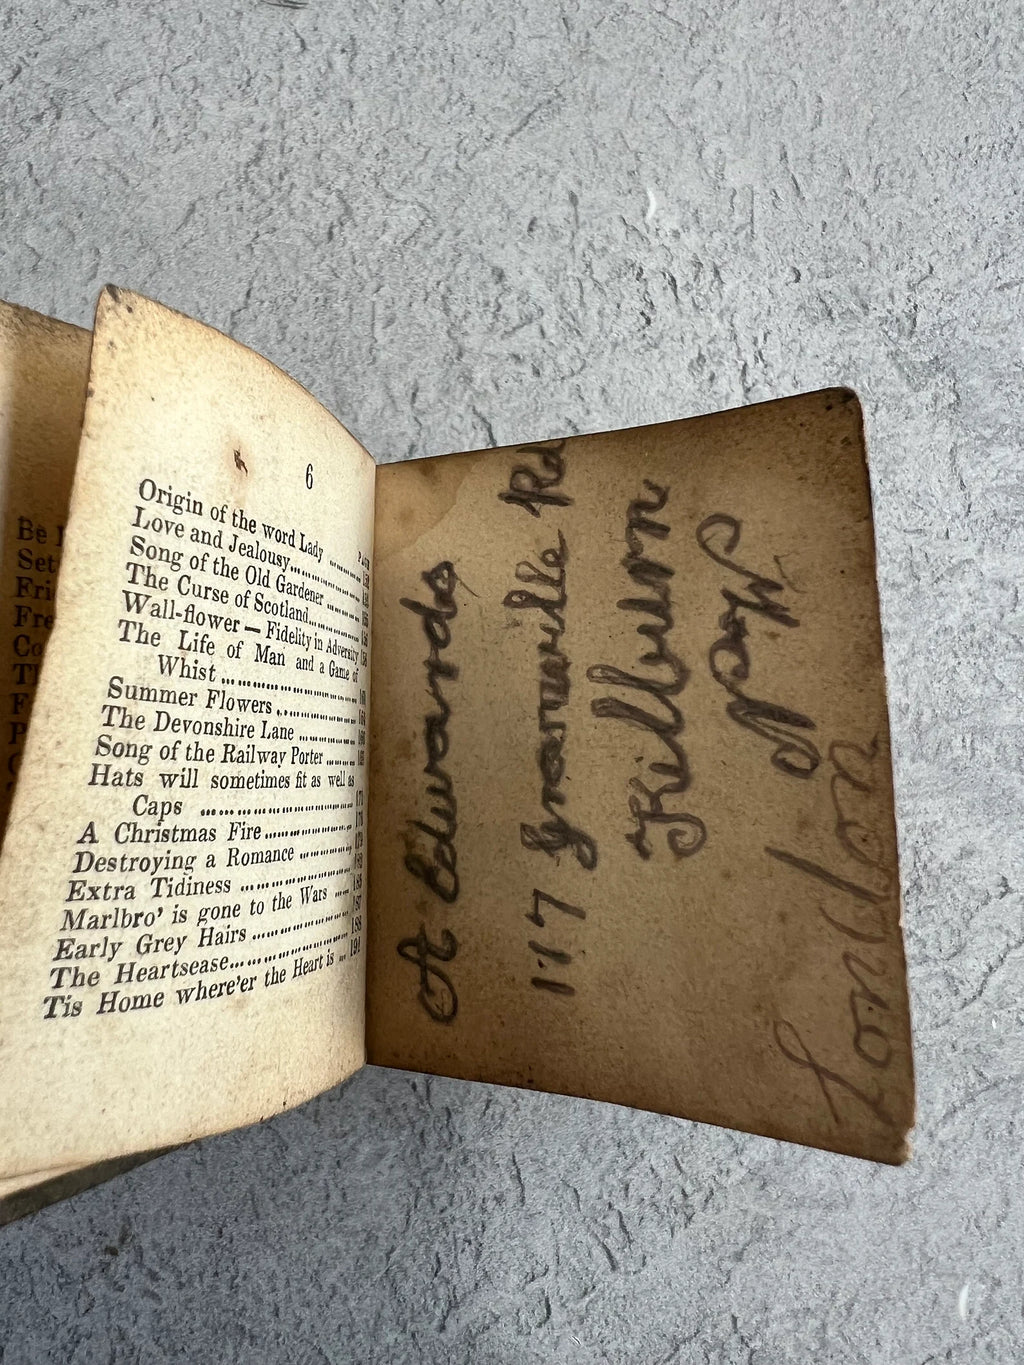 6
PAGE
Origin of the word Lady
Love and Jealousy
Song of the Old Gardener
The Curse of Scotland
Wall-flower — Fidelity in Adversity
The Life of Man and a Game of
Whist
Summer Flowers
The Devonshire Lane
Song of the Railway Porter
Hats will sometimes fit as well as
Caps
A Christmas Fire
Destroying a Romance
Extra Tidiness
Marlbro' is gone to the Wars
Early Grey Hairs
The Heartsease
Tis Home where'er the Heart is ... 194
A Edwards
117 Granville Rd
Kilburn
N.W.
London